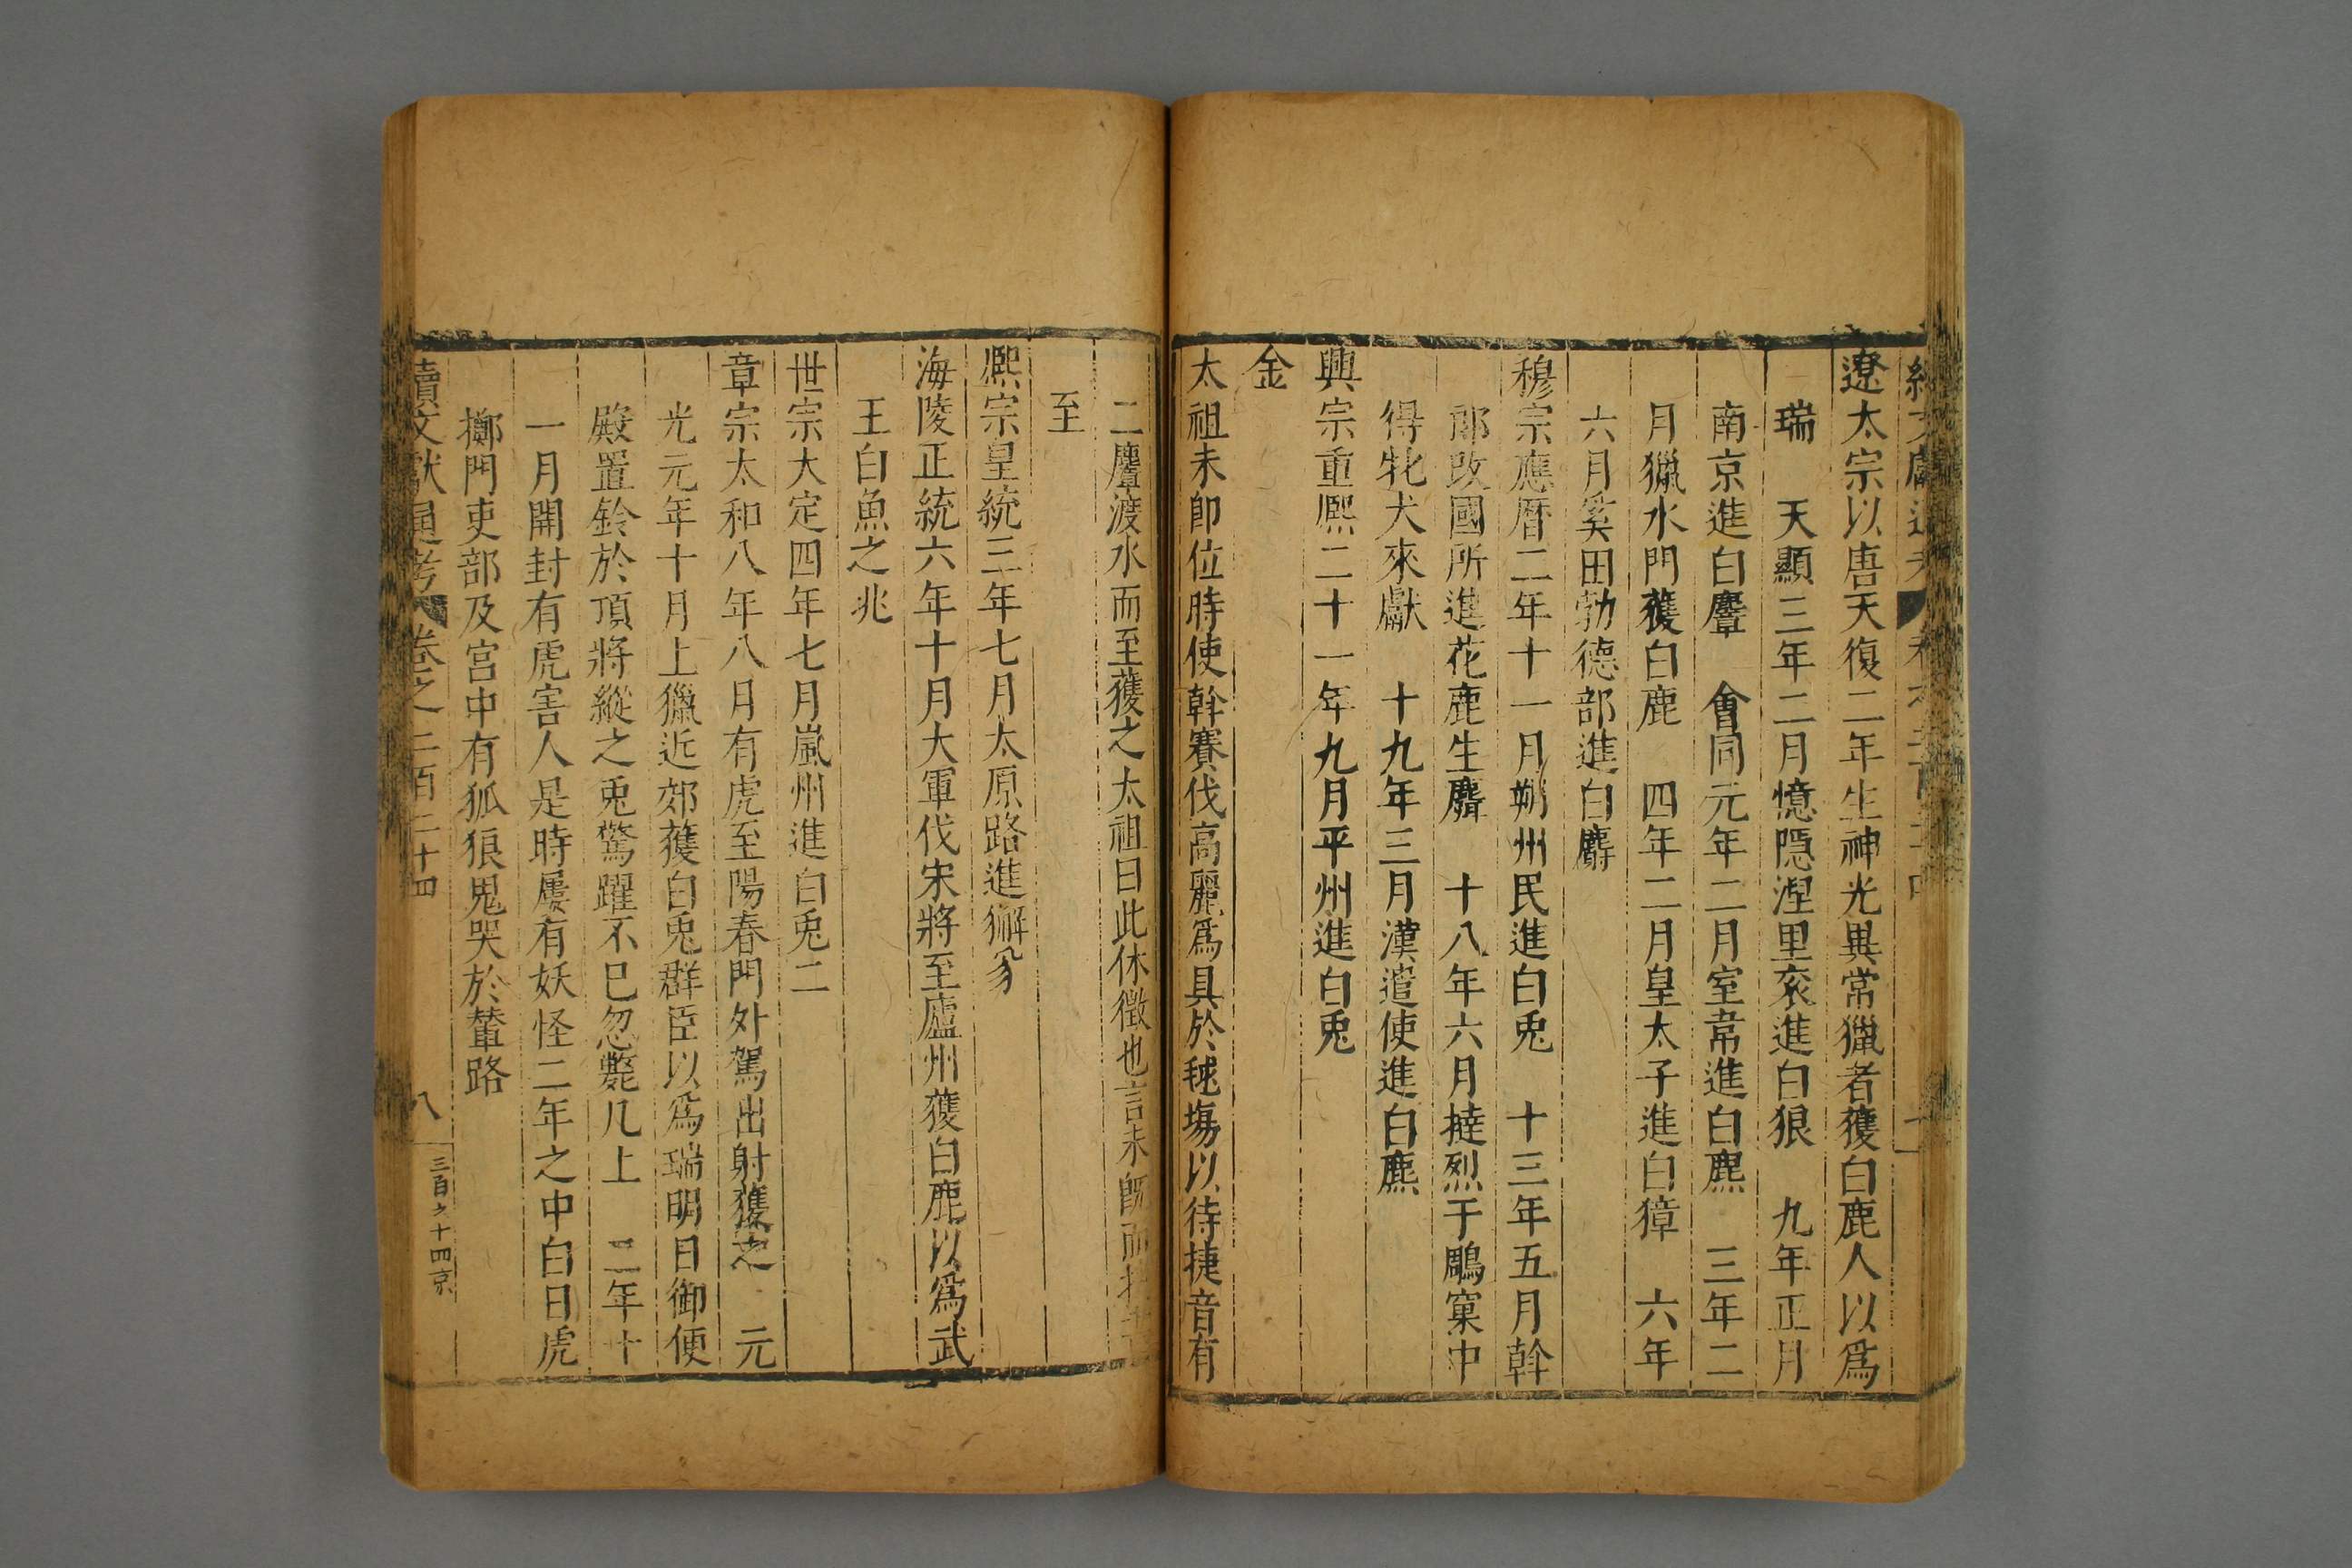 遼太宗以唐天復二年生神光異常獵者獲白鹿人以爲
瑞　天顯三年二月憶隱涅里衮進白狼　九年正月
南京進白麞　會同元年二月室韋進白麃　三年二
月獵水門獲白鹿　四年二月皇太子進白獐　六年
六月奚田勃德部進白麝
穆宗應曆二年十一月朔州民進白兎　十三年五月斡
郎改國所進花鹿生麛　十八年六月撻烈于鵰窠中
得牝犬來獻　十九年三月漢遣使進白麃
興宗重熙二十一年九月平州進白兎
金
太祖未卽位時使斡賽伐高麗爲具於毬場以待捷音有
二麞渡水而至獲之太祖曰此休徵也言未旣而捷
至
熙宗皇統三年七月太原路進獬豸
海陵正統六年十月大軍伐宋將至廬州獲白鹿以爲武
王白魚之兆
世宗大定四年七月嵐州進白兎二
章宗太和八年八月有虎至陽春門外駕出射獲之　元
光元年十月上獵近郊獲白兎群臣以爲瑞明日御便
殿置鈴於頂將縱之兎驚躍不已忽斃几上　二年十
一月開封有虎害人是時屢有妖怪二年之中白日虎
擲門吏部及宮中有狐狼鬼哭於輦路
續文獻通考　卷之二百二十四　八　三百九十四京